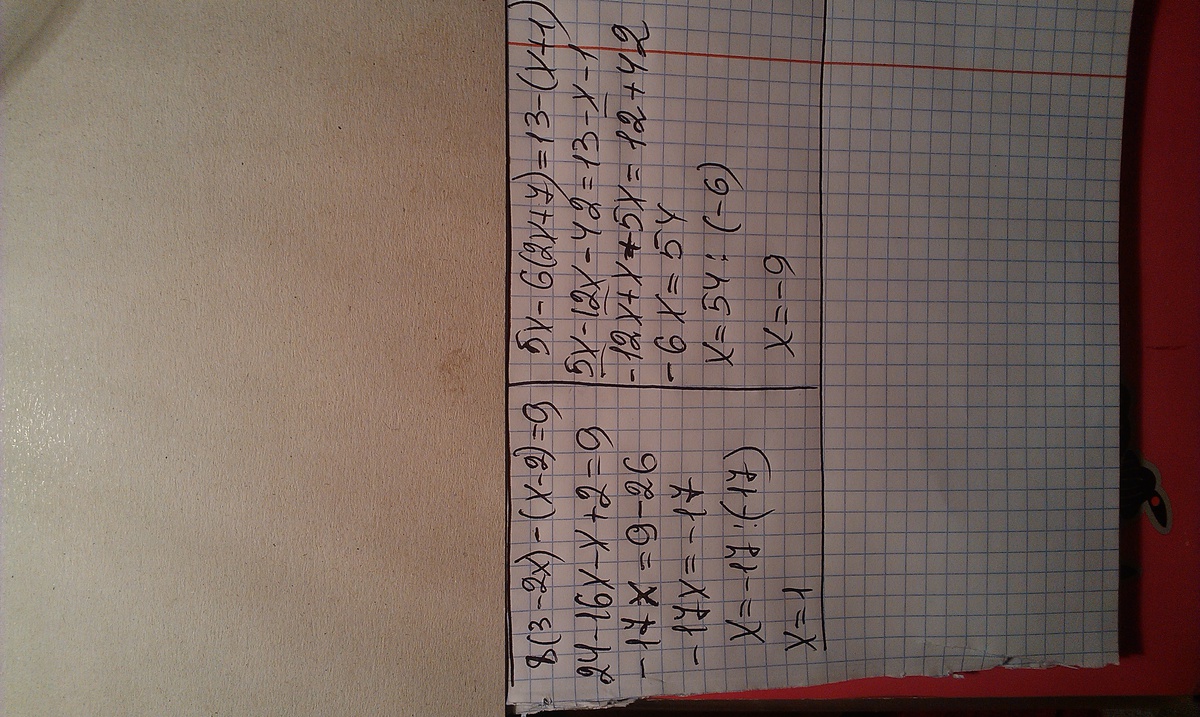 8(3-2x)-(x-2)=9
24-16x-x+2=9
-17x=9-26
-17x=-17
x=-17:(-17)
x=1
5x-6(2x+7)=13-(x+1)
5x-12x-42=13-x-1
-12x+x+5x=12+42
-6x=54
x=54:(-6)
x=-9